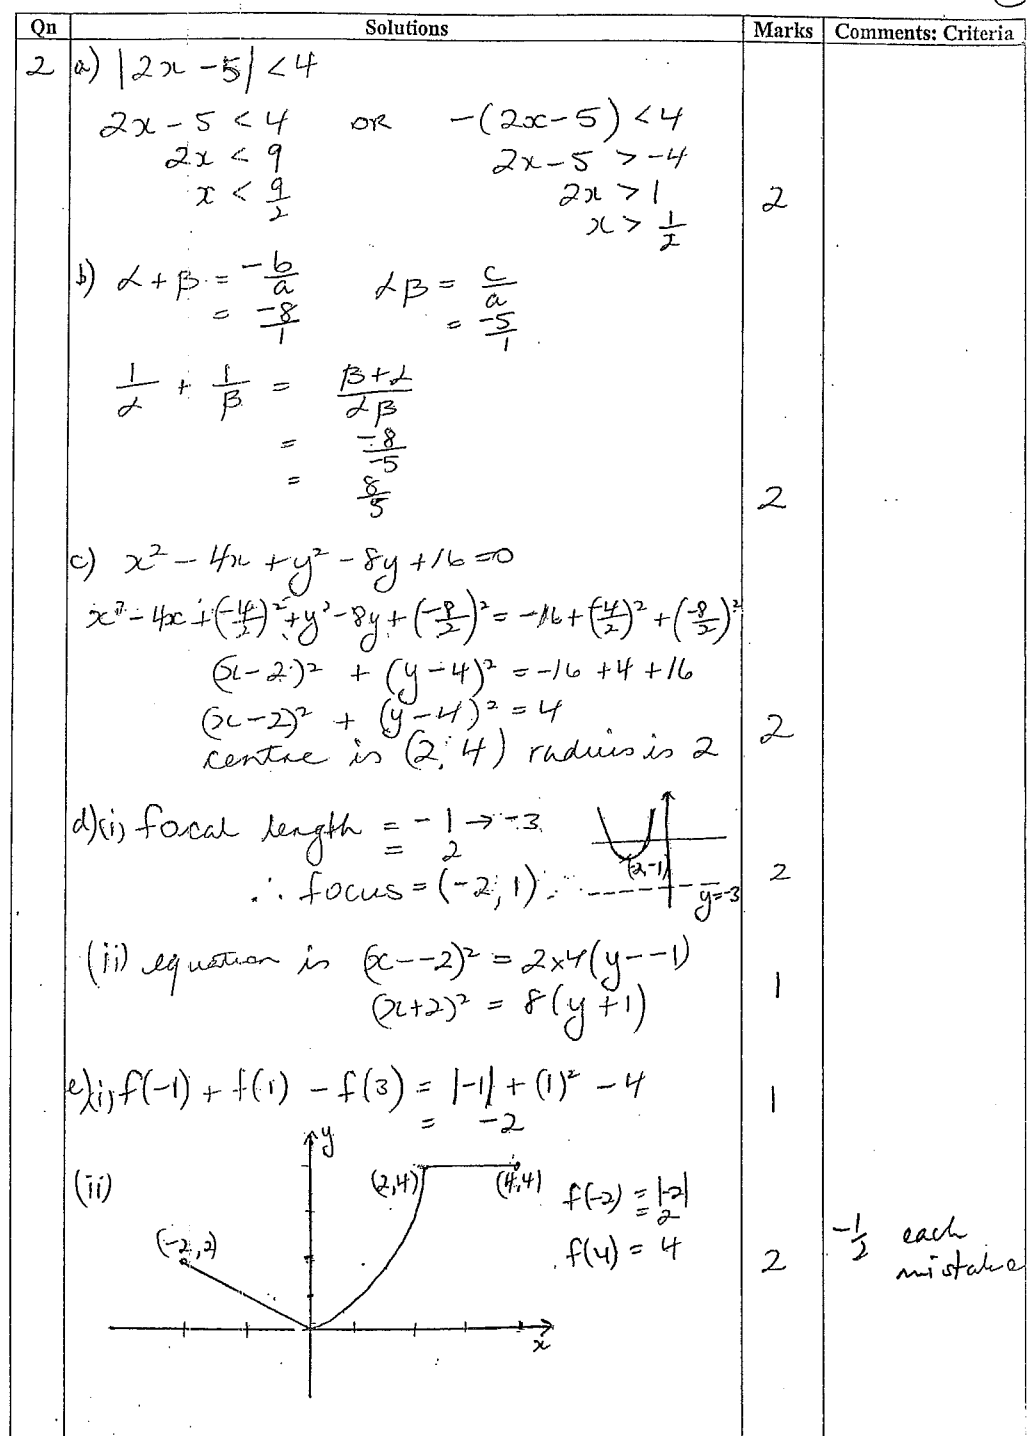 Qn Solutions Marks Comments: Criteria
2 a) |2x - 5| < 4
2x - 5 < 4 OR -(2x-5) < 4
2x < 9 2x-5 > -4
x < 9/2 2x > 1 2
x > 1/2
b) α + β = -b/a αβ = c/a
= -8/1 = -5/1
1/α + 1/β = β+α/αβ
= -8/-5
= 8/5 2
c) x² - 4x + y² - 8y + 16 = 0
x² - 4x + (-4/2)² + y² - 8y + (-8/2)² = -16 + (-4/2)² + (-8/2)²
(x-2)² + (y-4)² = -16 + 4 + 16
(x-2)² + (y-4)² = 4
centre is (2, 4) radius is 2 2
d)(i) focal length = -1 → -3
= 2 (-2,-1)
∴ focus = (-2, 1) y=-3 2
(ii) equation is (x--2)² = 2×4(y--1)
(x+2)² = 8(y+1) 1
e)i) f(-1) + f(1) - f(3) = |-1| + (1)² - 4
= -2 1
(ii) y (2,4) (4,4) f(-2) = |-2|
= 2
(-2,2) f(4) = 4 2 -1/2 each
mistake
x